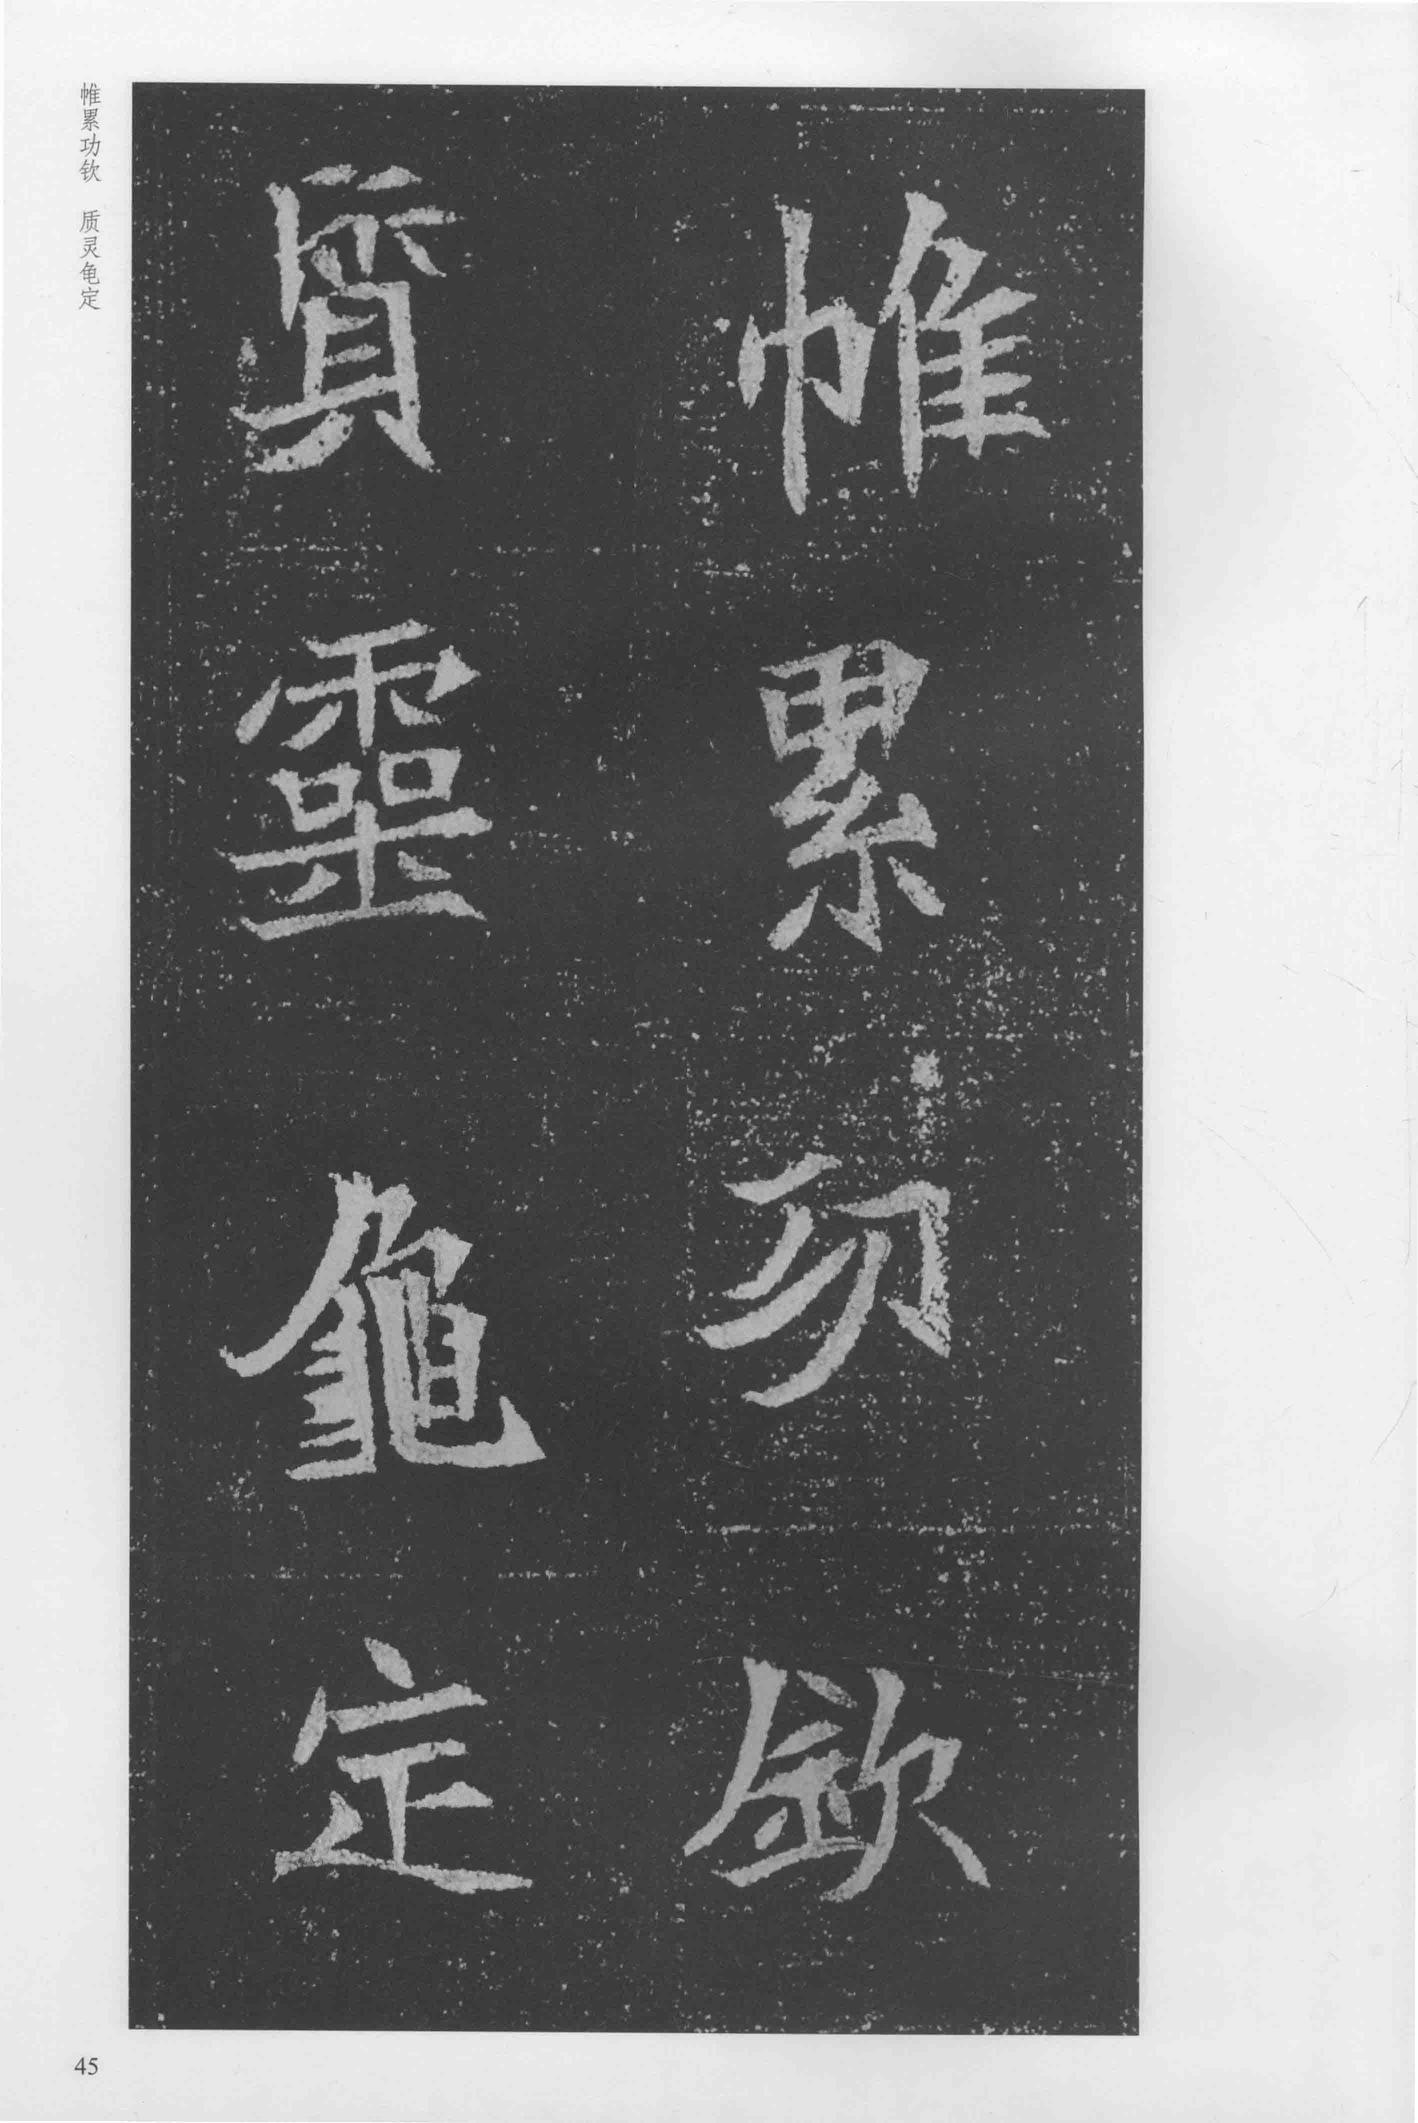 帷累功欽
質靈龜定
帷累功钦　质灵龟定
45